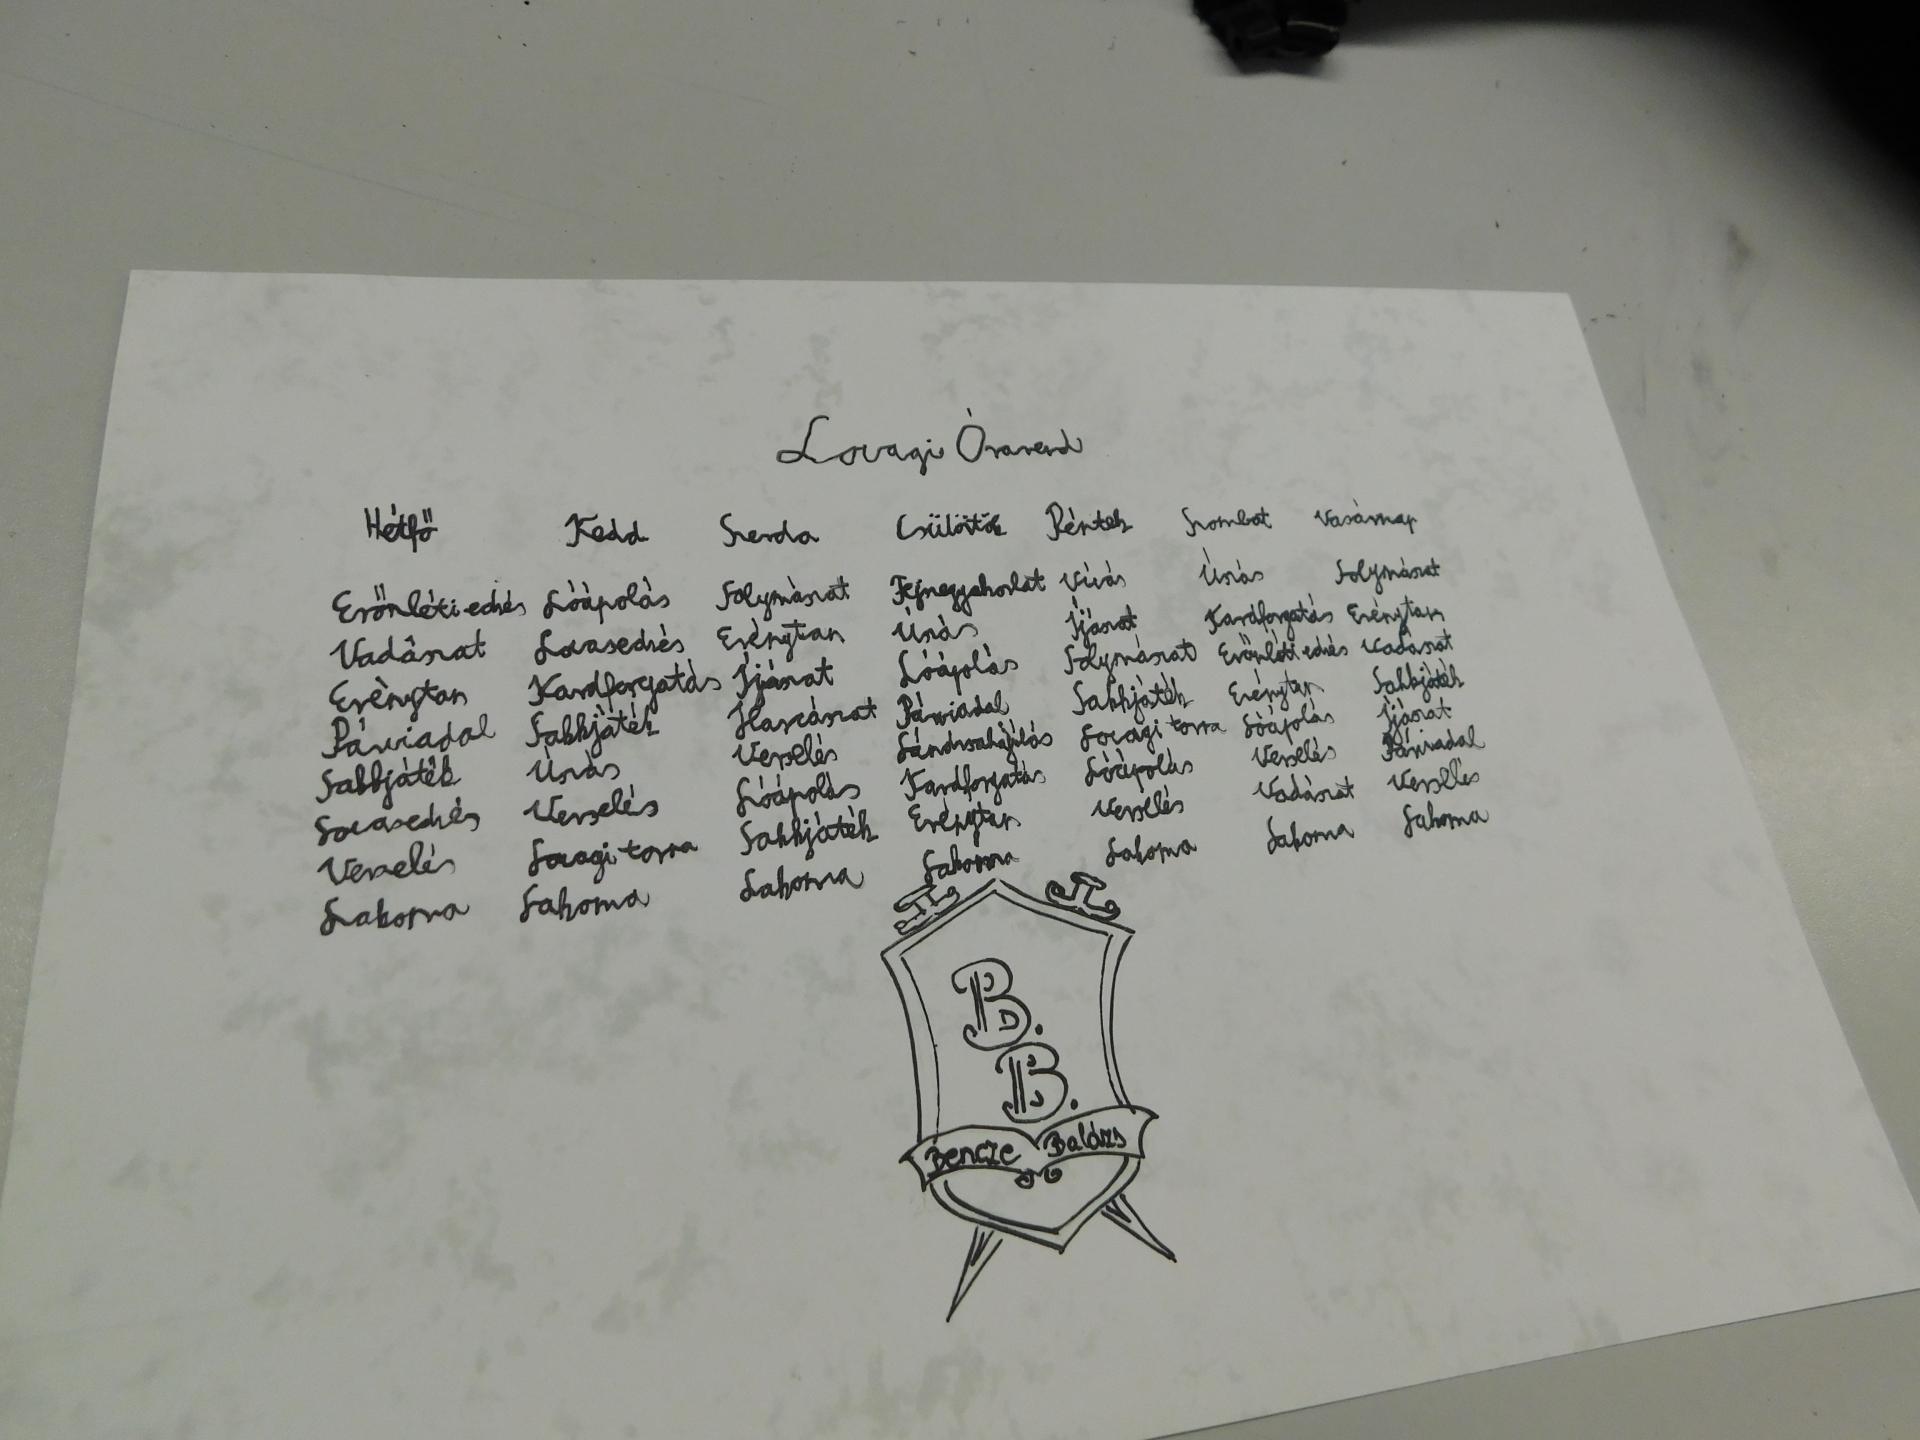 Lovagi Órarend
Hétfő Kedd Szerda Csülötök Péntek Szombat Vasárnap
Erőnléti edzés Lóápolás Solymászat Fejnegyakorlat Vívás Úszás Solymászat
Vadászat Lovasedzés Erénytan Úszás Íjászat Kardforgatás Erénytan
Erénytan Kardforgatás Íjászat Lóápolás Solymászat Erőnléti edzés Vadászat
Párviadal Sakkjáték Harcászat Párviadal Sakkjáték Erénytan Sakkjáték
Sakkjáték Úszás Verselés Lándzsahajítás Lovagi torna Lóápolás Íjászat
Lovasedzés Verselés Lóápolás Kardforgatás Lóápolás Verselés Párviadal
Verselés Lovagi torna Sakkjáték Erénytan Verselés Vadászat Verselés
Lakoma Lakoma Lakoma Lakoma Lakoma Lakoma Lakoma
B.
B.
Bencze Balázs